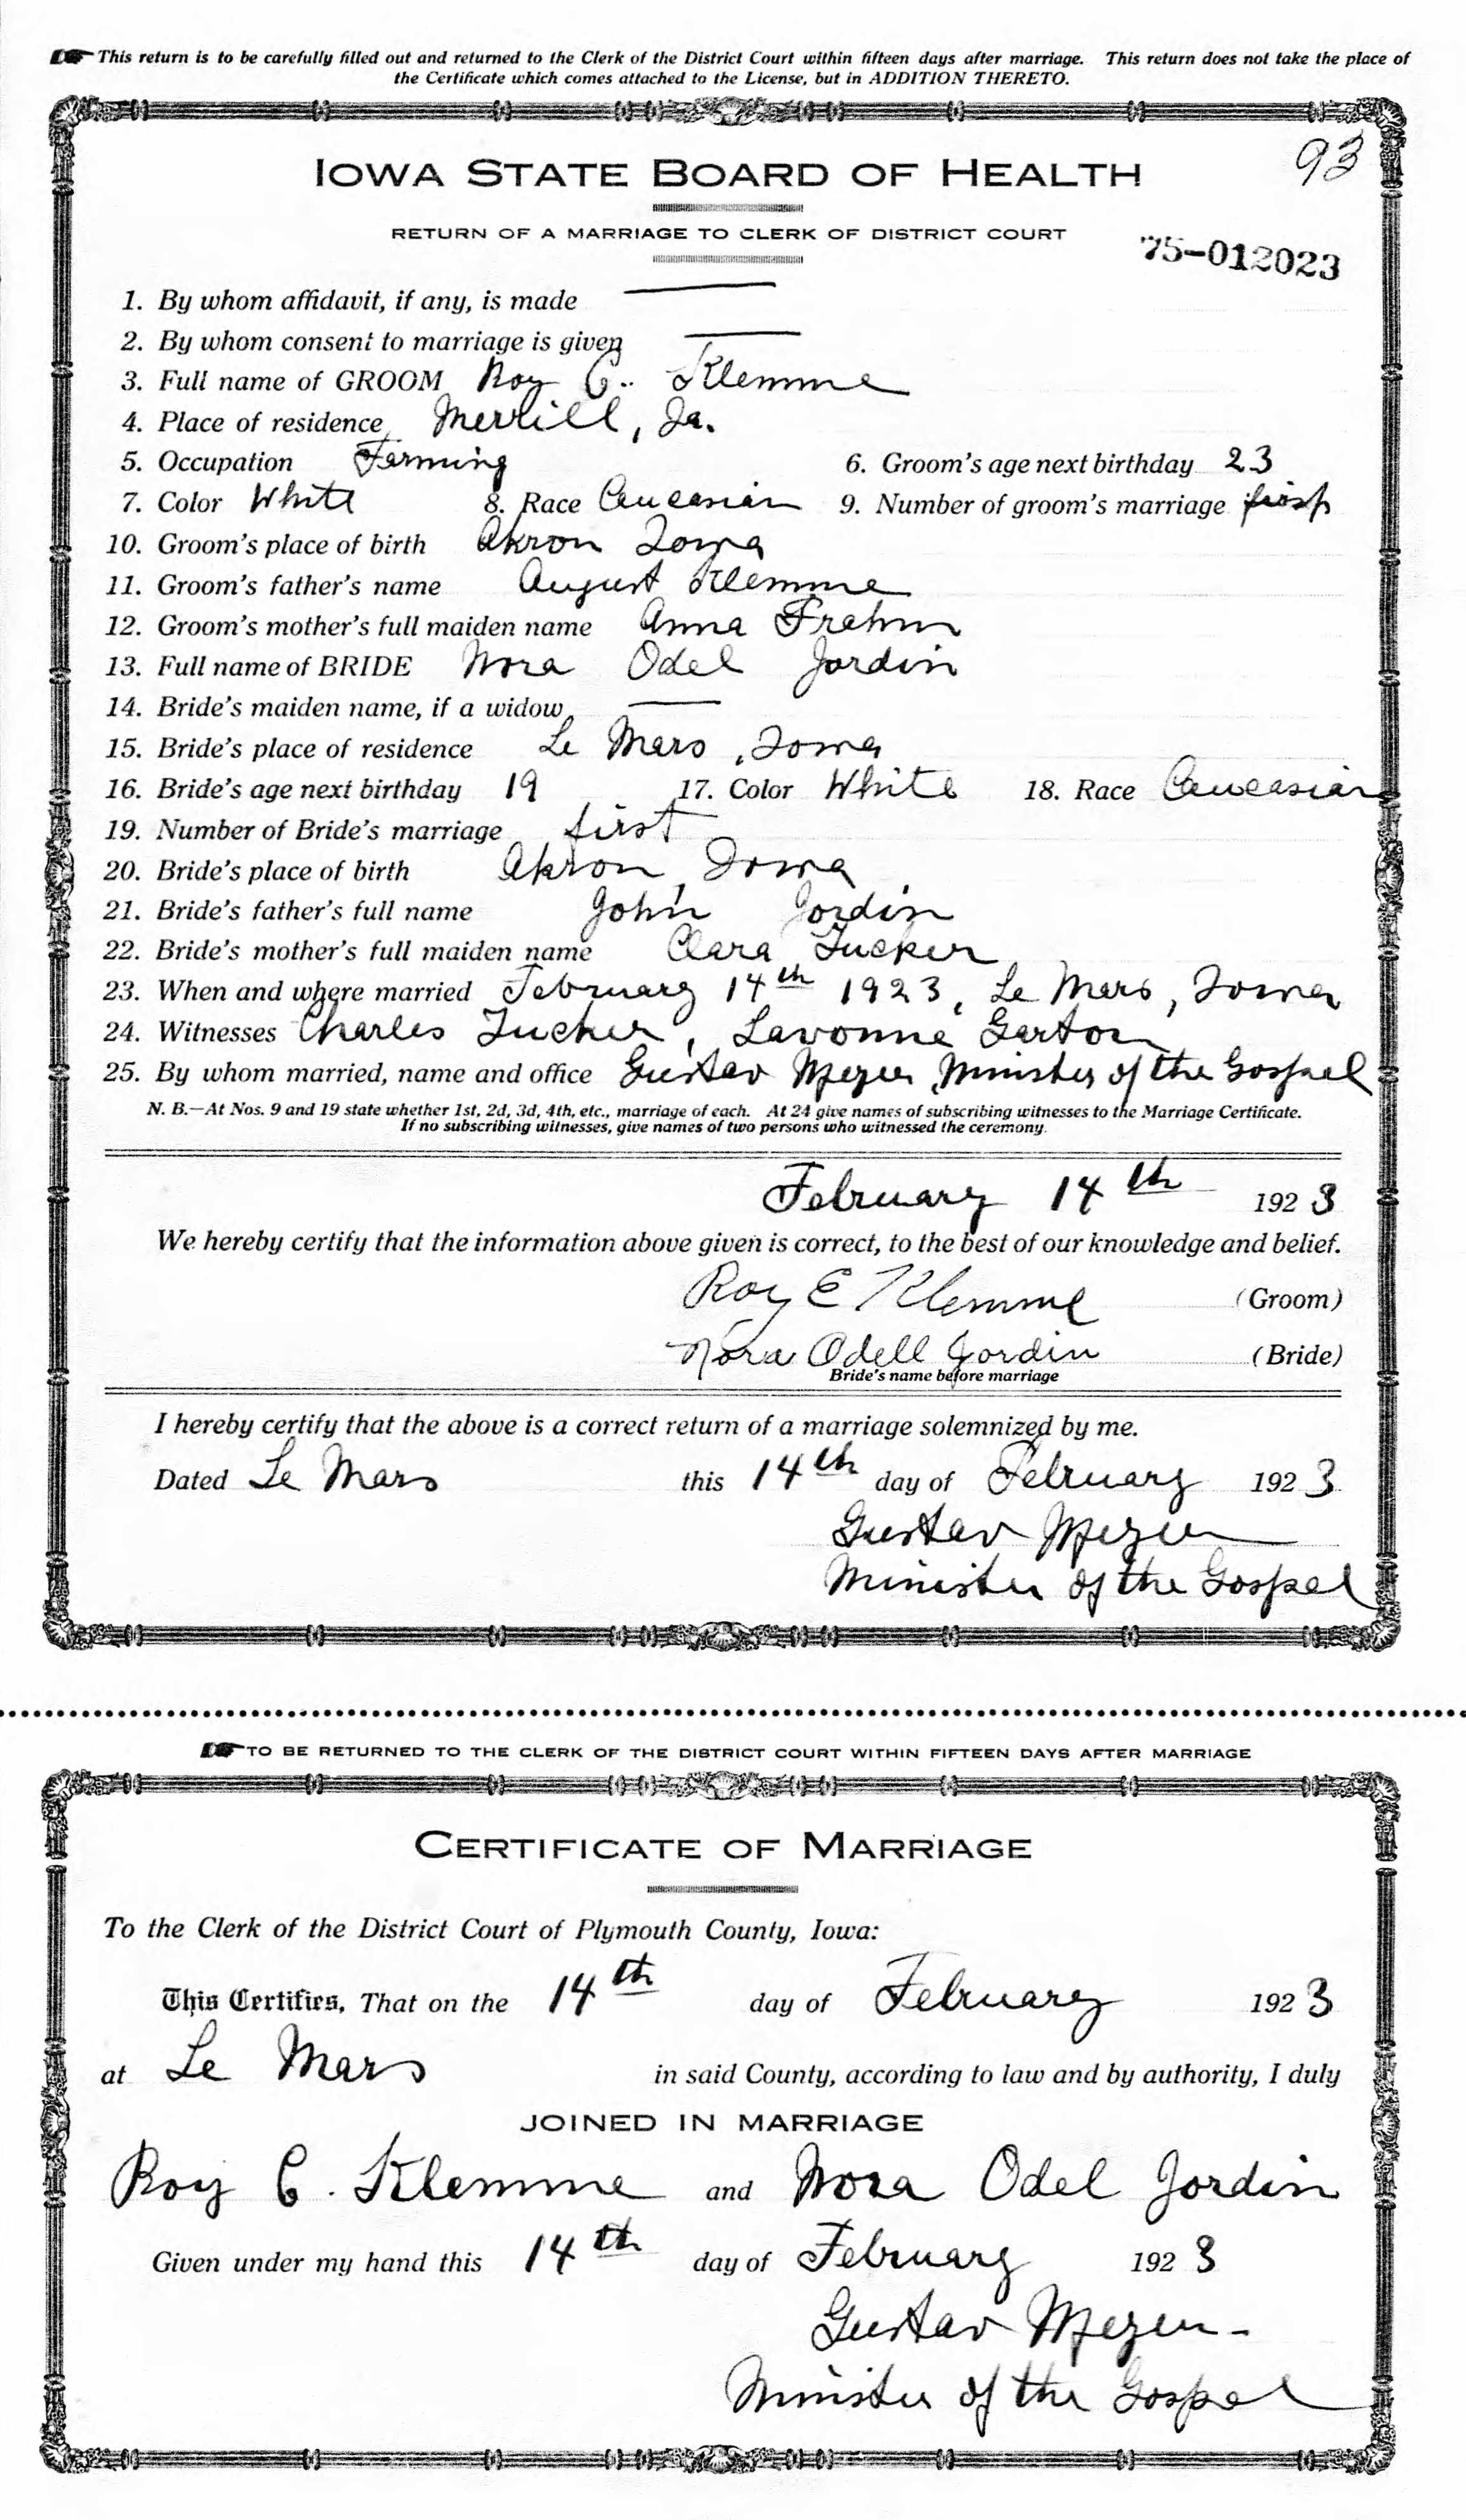 This return is to be carefully filled out and returned to the Clerk of the District Court within fifteen days after marriage. This return does not take the place of
the Certificate which comes attached to the License, but in ADDITION THERETO.
93
IOWA STATE BOARD OF HEALTH
RETURN OF A MARRIAGE TO CLERK OF DISTRICT COURT
75-012023
1. By whom affidavit, if any, is made
2. By whom consent to marriage is given
3. Full name of GROOM Roy C. Klemme
4. Place of residence Merrill, Ia.
5. Occupation Farming 6. Groom's age next birthday 23
7. Color White 8. Race Caucasian 9. Number of groom's marriage first
10. Groom's place of birth Akron Iowa
11. Groom's father's name August Klemme
12. Groom's mother's full maiden name Anna Frahm
13. Full name of BRIDE Nora Odel Jordin
14. Bride's maiden name, if a widow
15. Bride's place of residence Le Mars, Iowa
16. Bride's age next birthday 19 17. Color White 18. Race Caucasian
19. Number of Bride's marriage first
20. Bride's place of birth Akron, Iowa
21. Bride's father's full name John Jordin
22. Bride's mother's full maiden name Clara Tucker
23. When and where married February 14th 1923, Le Mars, Iowa
24. Witnesses Charles Tucker, Lavonne Garton
25. By whom married, name and office Gustav Minister of the Gospel
N. B.—At Nos. 9 and 19 state whether 1st, 2d, 3d, 4th, etc., marriage of each. At 24 give names of subscribing witnesses to the Marriage Certificate.
If no subscribing witnesses, give names of two persons who witnessed the ceremony.
February 14th 1923
We hereby certify that the information above given is correct, to the best of our knowledge and belief.
Roy E Klemme (Groom)
Nora Odell Jordin (Bride)
Bride's name before marriage
I hereby certify that the above is a correct return of a marriage solemnized by me.
Dated Le Mars this 14th day of February 1923
Gustav
Minister of the Gospel
TO BE RETURNED TO THE CLERK OF THE DISTRICT COURT WITHIN FIFTEEN DAYS AFTER MARRIAGE
CERTIFICATE OF MARRIAGE
To the Clerk of the District Court of Plymouth County, Iowa:
This Certifies, That on the 14th day of February 1923
at Le Mars in said County, according to law and by authority, I duly
JOINED IN MARRIAGE
Roy C. Klemme and Nora Odel Jordin
Given under my hand this 14th day of February 1923
Gustav
Minister of the Gospel